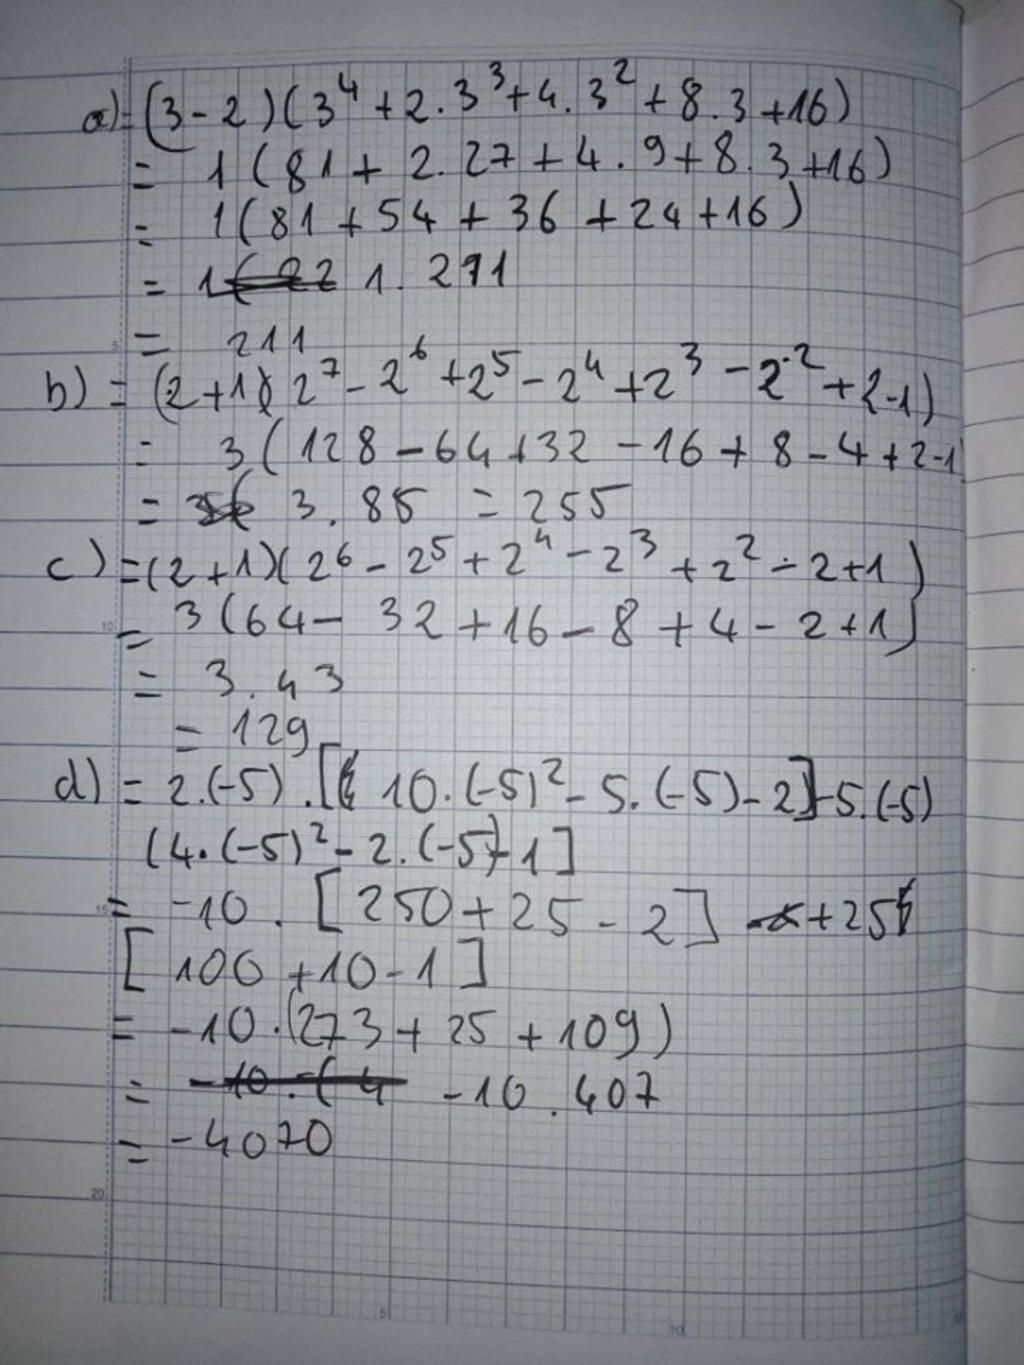 a) = (3-2)(3⁴ + 2.3³ + 4.3² + 8.3 + 16)
= 1(81 + 2.27 + 4.9 + 8.3 + 16)
= 1(81 + 54 + 36 + 24 + 16)
= 1. 211
= 211
b) = (2+1)(2⁷ - 2⁶ + 2⁵ - 2⁴ + 2³ - 2² + 2 - 1)
= 3(128 - 64 + 32 - 16 + 8 - 4 + 2 - 1
= 3. 85 = 255
c) = (2+1)(2⁶ - 2⁵ + 2⁴ - 2³ + 2² - 2 + 1)
= 3(64 - 32 + 16 - 8 + 4 - 2 + 1)
= 3.43
= 129
d) = 2.(-5).[10.(-5)² - 5.(-5) - 2] - 5.(-5)
(4.(-5)² - 2.(-5) - 1]
= -10. [250 + 25 - 2] + 25
[100 + 10 - 1]
= -10.(273 + 25 + 109)
= -10.407
= -4070
5
10
15
20
5
10